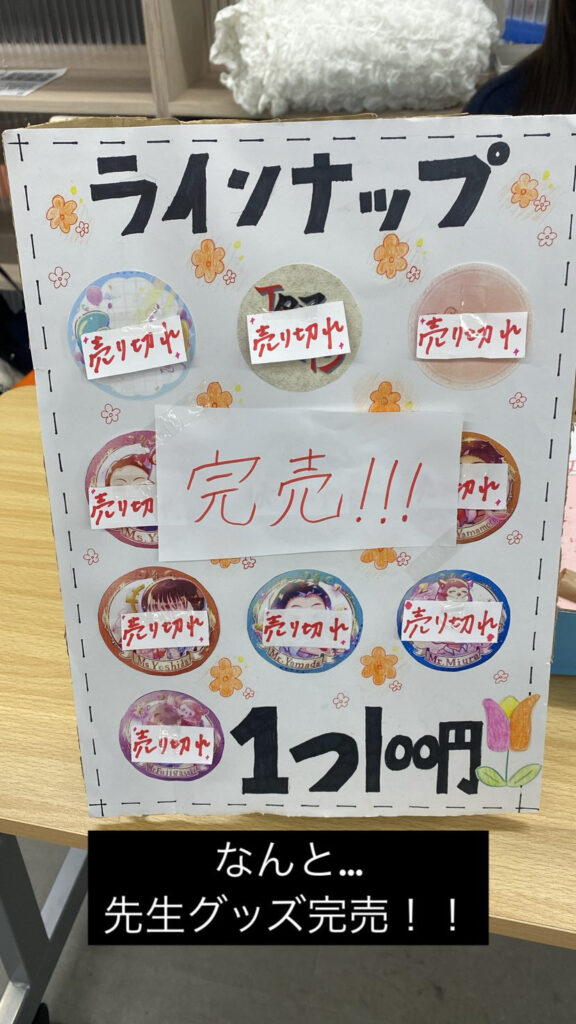 ラインナップ
売り切れ
売り切れ
売り切れ
売り切れ
完売!!!
Ms. Yoshida
売り切れ
Mr. Yamada
売り切れ
Mr. Miura
売り切れ
売り切れ
1つ100円
なんと…
先生グッズ完売！！